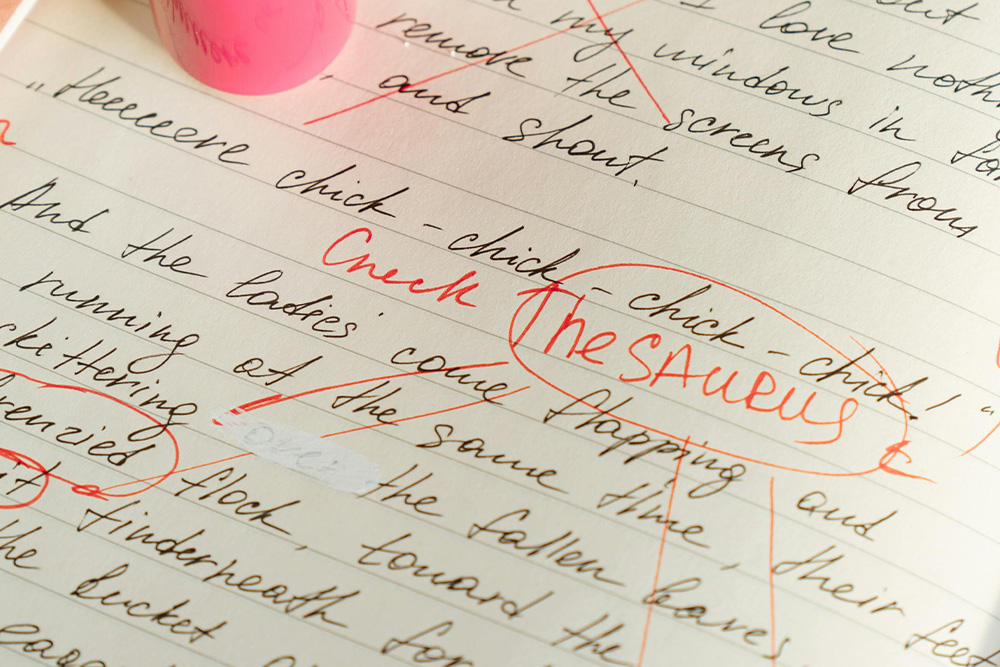 but
I love
my windows in
remove the screens from
, and shout.
„Heeeeere chick - chick - chick - chick!"
Check
TheSAURUS
And the ladies' come flapping and
running at the same time, their feet
skittering over the fallen leaves
flock, toward the
it tinderneath for
the bucket